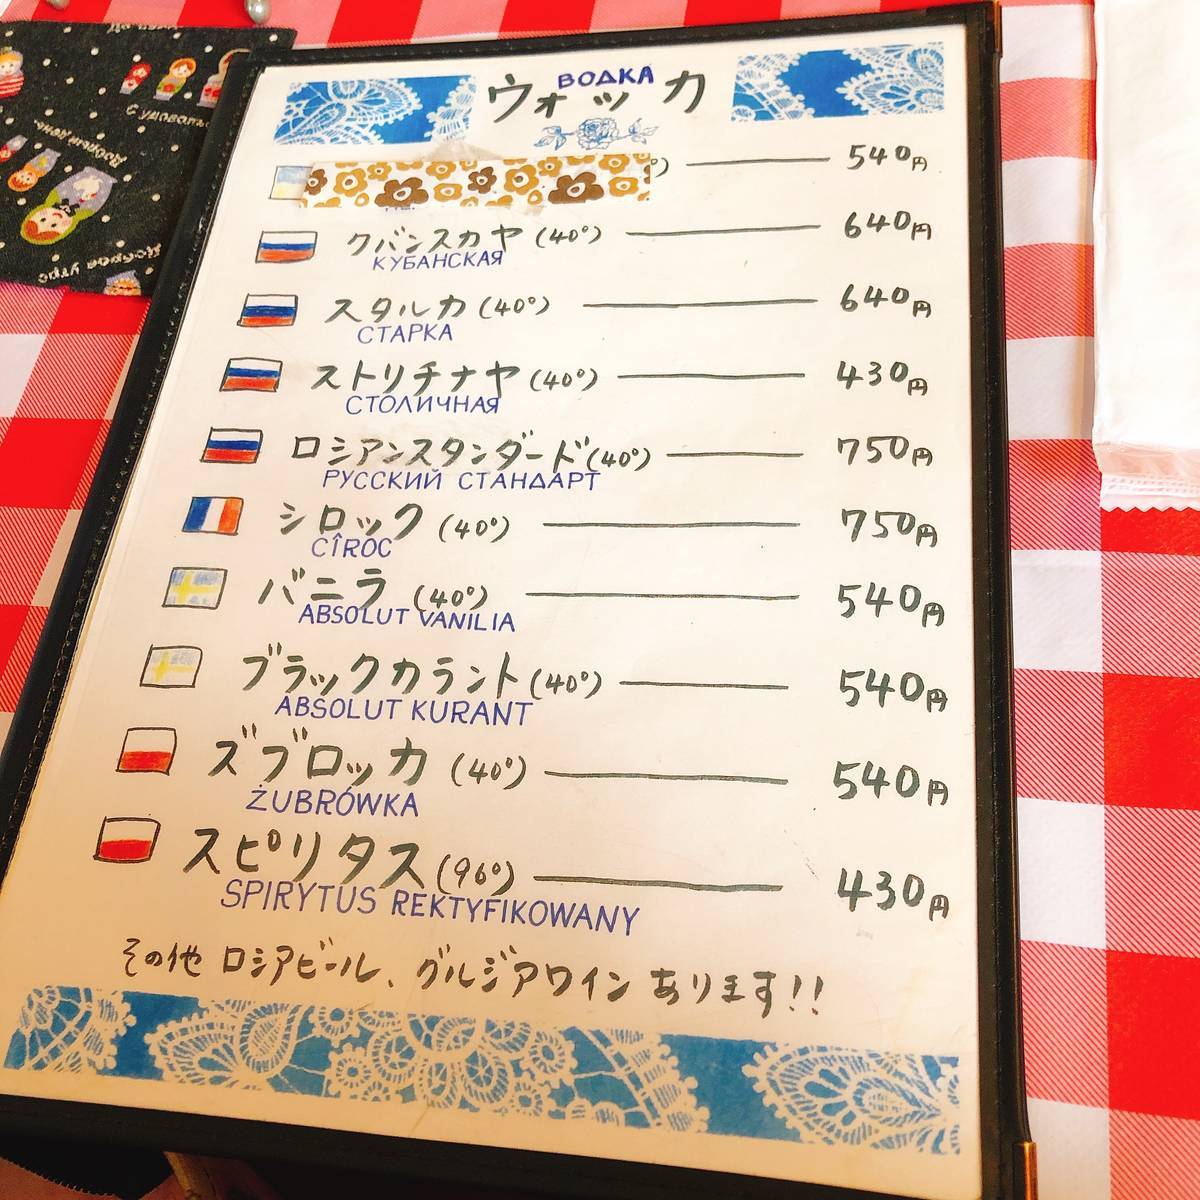 ВОДКА
ウォッカ
540円
クバンスカヤ (40°) 640円
КУБАНСКАЯ
スタルカ (40°) 640円
СТАРКА
ストリチナヤ (40°) 430円
СТОЛИЧНАЯ
ロシアンスタンダード (40°) 750円
РУССКИЙ СТАНДАРТ
シロック (40°) 750円
CÎROC
バニラ (40°) 540円
ABSOLUT VANILIA
ブラックカラント (40°) 540円
ABSOLUT KURANT
ズブロッカ (40°) 540円
ŻUBRÓWKA
スピリタス (96°) 430円
SPIRYTUS REKTYFIKOWANY
その他 ロシアビール、グルジアワイン あります!!
Добрый день.
Доброе утро